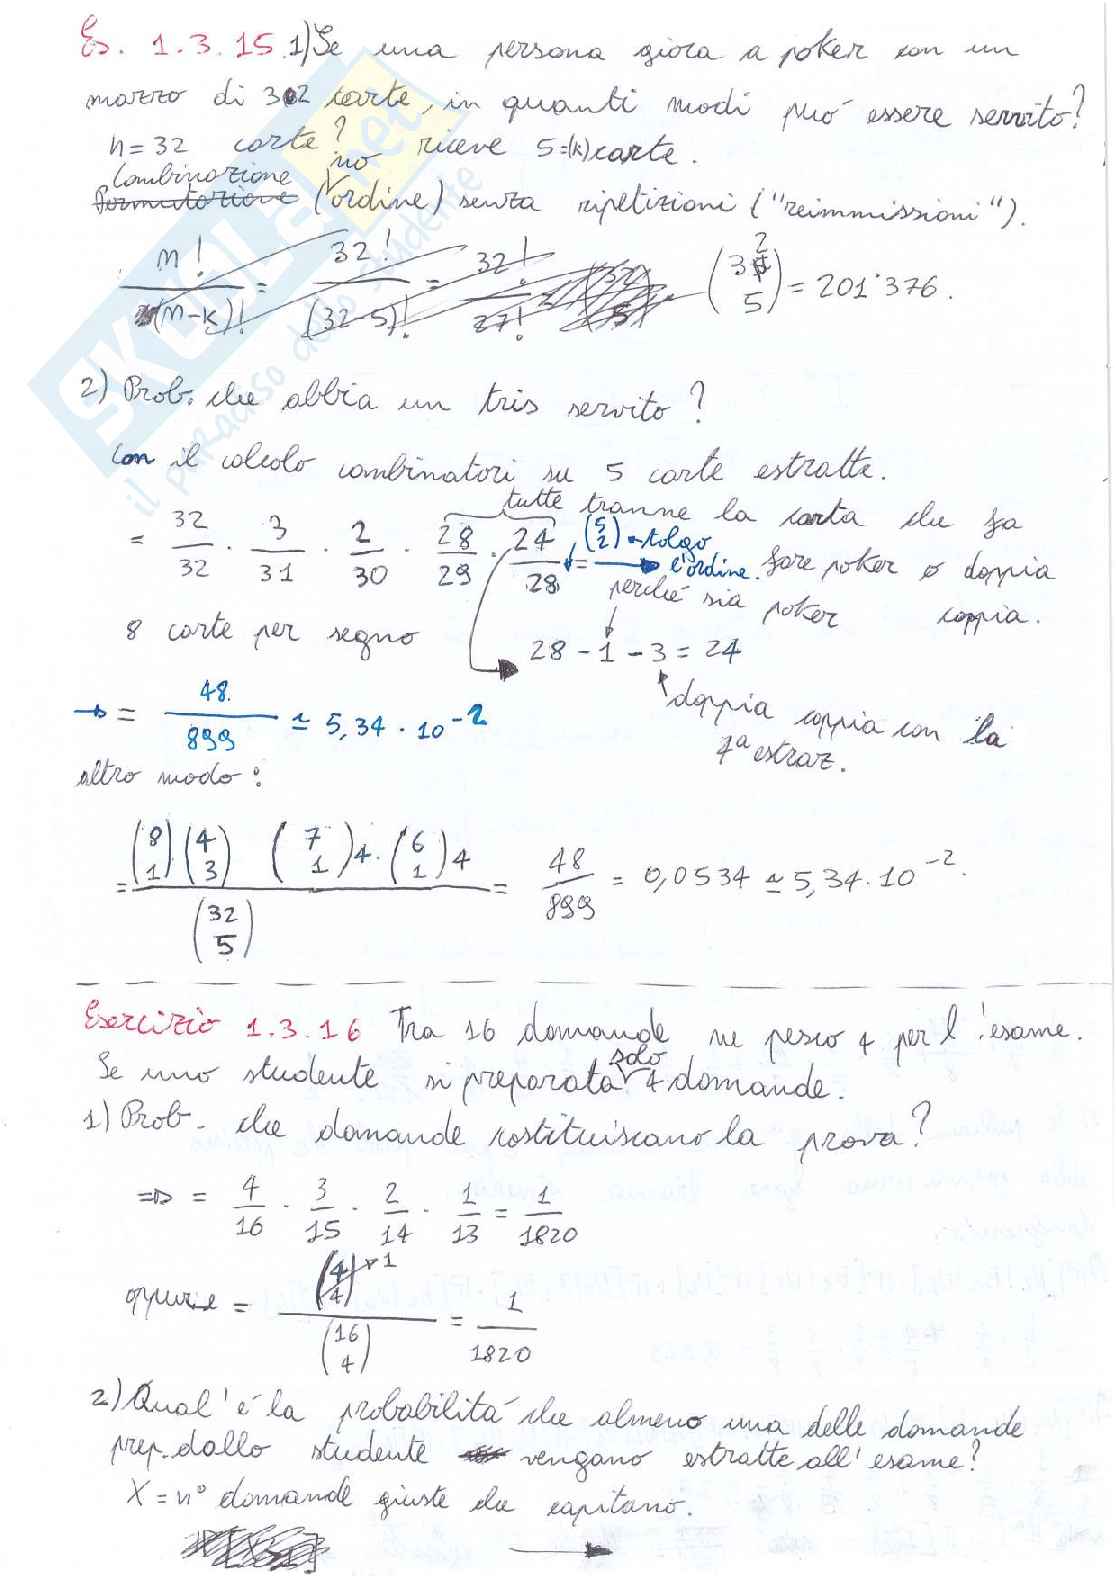 Es. 1.3.15 1) Se una persona gioca a poker con un
mazzo di 32 carte, in quanti modi può essere servito?
n=32 carte? riceve 5=(k) carte.
Combinazione no
permutazione (ordine) senza ripetizioni ("reimmissioni").
n! / (n-k)! = 32! / (32-5)! = 32! / 27! (32 5) = 201'376.
2) Prob. che abbia un tris servito?
con il calcolo combinatori su 5 carte estratte.
tutte tranne la carta che fa
= 32/32 · 3/31 · 2/30 · 28/29 · 24/28 = (5 2) tolgo l'ordine. fare poker o doppia
perché sia poker coppia.
8 carte per segno 28 - 1 - 3 = 24
→ = 48/899 ≃ 5,34 · 10⁻² doppia coppia con la
4ª estraz.
altro modo:
= (8 1)(4 3) (7 1)4 · (6 1)4 / (32 5) = 48/899 = 0,0534 ≃ 5,34 · 10⁻².
Esercizio 1.3.16 Tra 16 domande ne pesco 4 per l'esame.
Se uno studente si preparata solo 4 domande.
1) Prob. che domande costituiscano la prova?
⇒ = 4/16 · 3/15 · 2/14 · 1/13 = 1/1820
oppure = (4 4) 1 / (16 4) = 1/1820
2) Qual'è la probabilità che almeno una delle domande
prep. dallo studente vengano estratte all'esame?
X = n° domande giuste che capitano.
→
SKUOLA.net
il paradiso dello studente